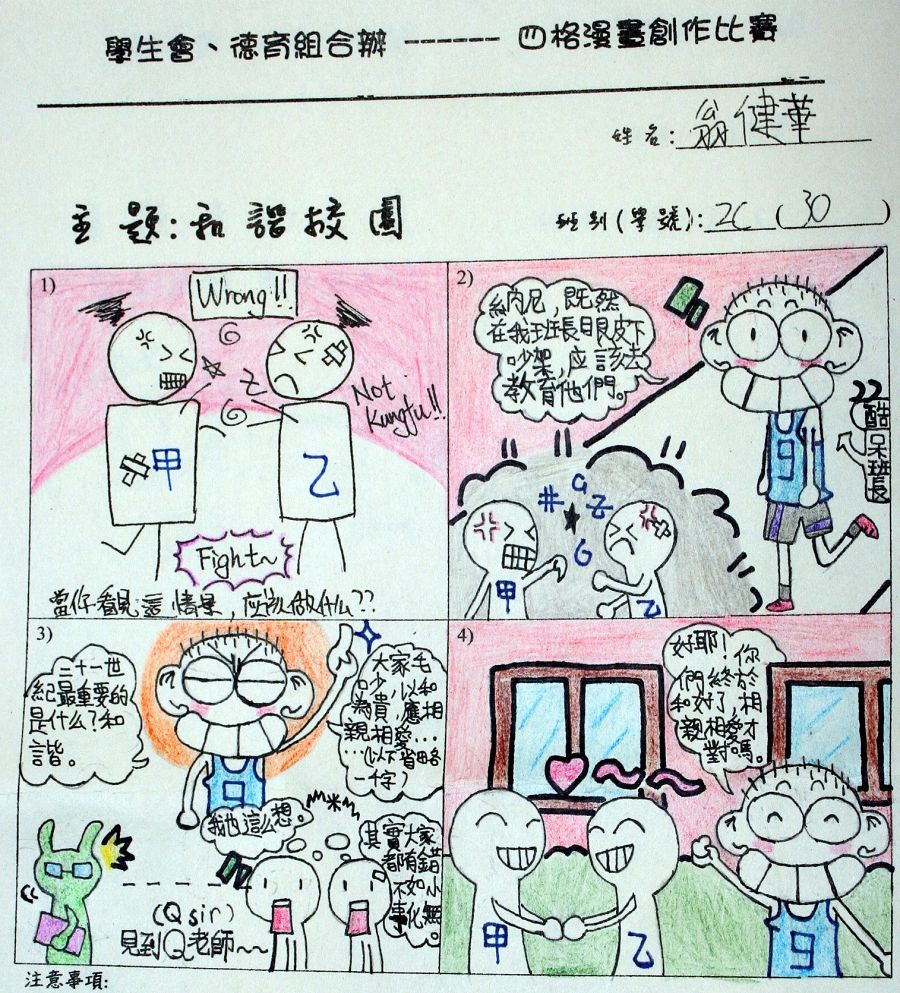 學生會、德育組合辦 ------ 四格漫畫創作比賽
姓名: 翁健華
主題:和諧校園
班別(學號): 2C (30)
1)
Wrong!!
Not
Kungfu!!
甲
乙
Fight~
當你看見這情景,应該做什么??
2)
納尼,既然
在我班長眼皮下
吵架,应該去
教育他們。
9
酷呆班長
甲
乙
3)
二十一世
紀最重要的
是什么?和
諧。
9
大家毛
吵,以和
為貴,應相
親相愛...
...(以下省略
一千字)
我也這么想。
其實大家
都有錯
不如小
事化無。
(Q sir)
見到Q老師~~
4)
好耶!你
們終於
和好了,相
親相愛才
對嗎。
甲
乙
9
注意事項: